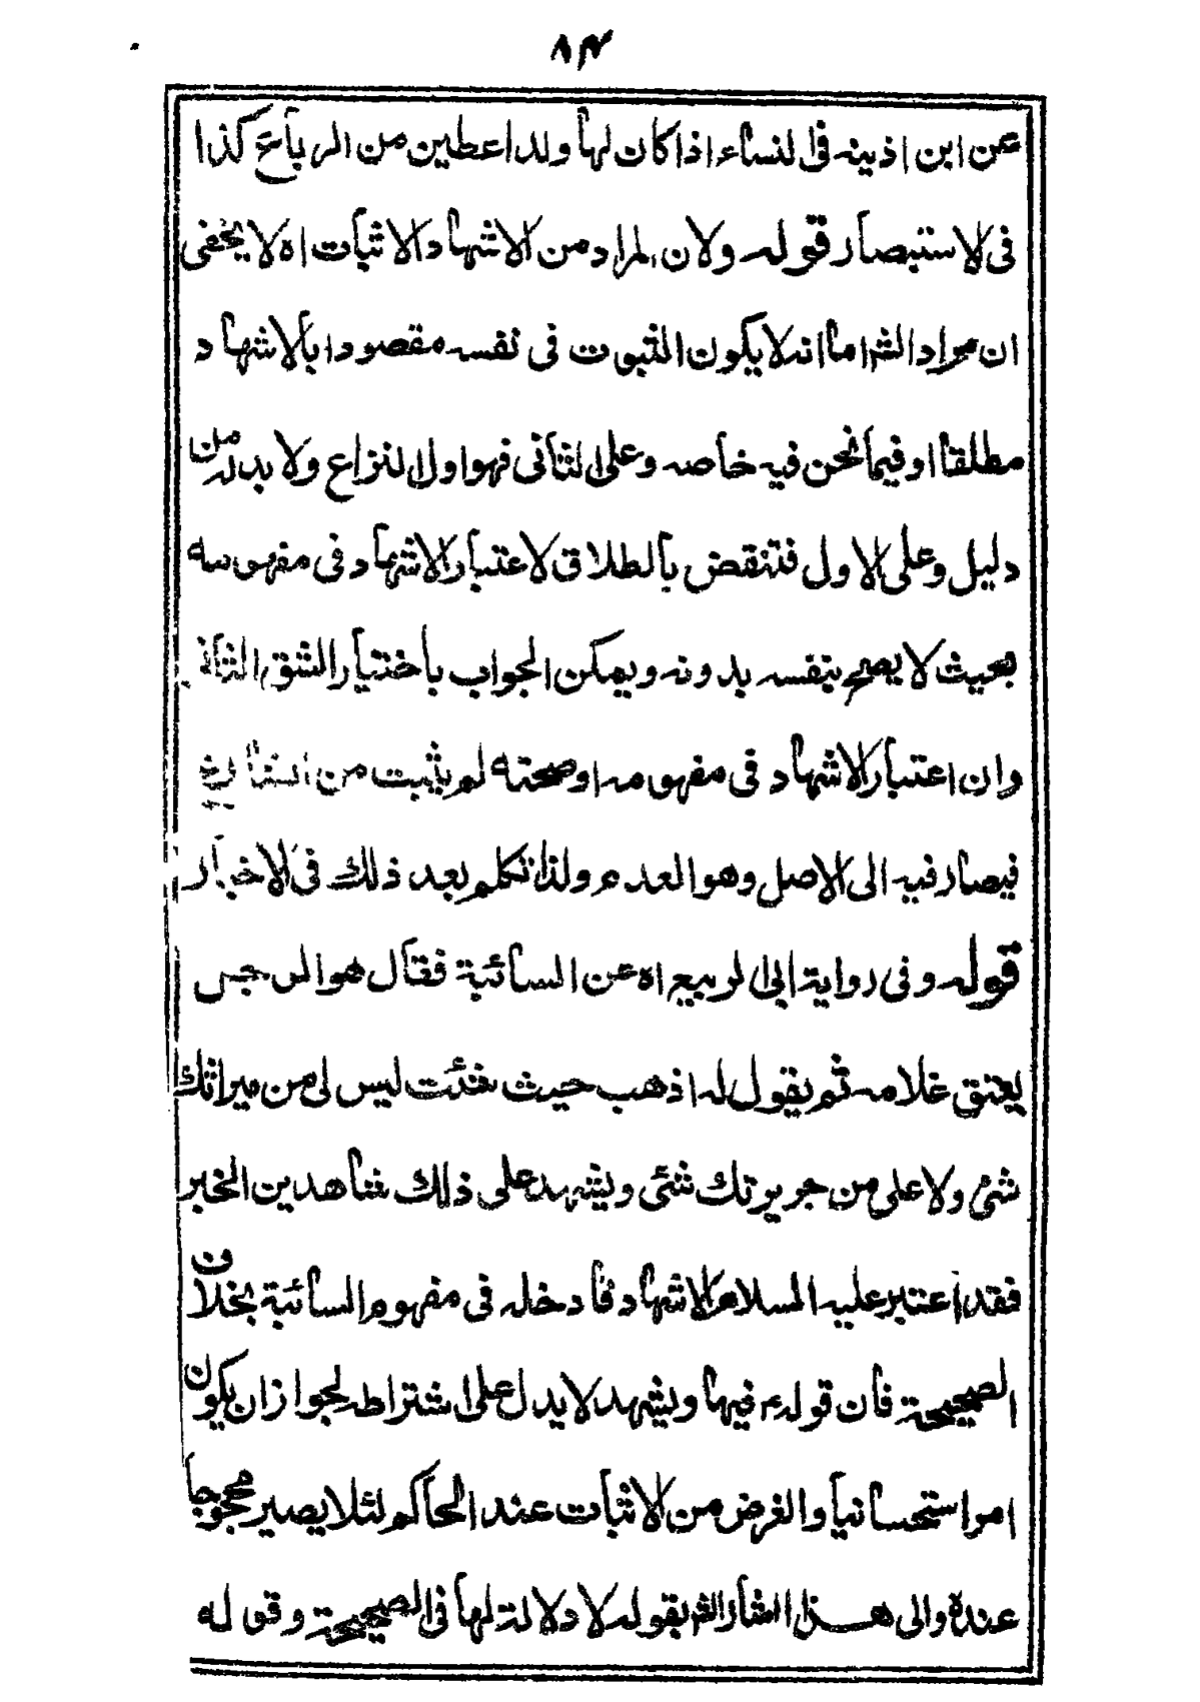 ٨٤
عن ابن اذينه فى النساء اذا كان لها ولد اعطين من الرباع كذا
فى الاستبصار قوله ولان المراد من الاشهاد الاثبات اه لا يخفى
ان مراد الشم اما انه لا يكون الثبوت فى نفسه مقصودا بالاشهاد
مطلقا او فيما نحن فيه خاصه وعلى الثانى فهو اول النزاع ولا بد له من
دليل وعلى الاول فتنقض بالطلاق لاعتبار الاشهاد فى مفهومه
بحيث لا يصح بنفسه بدونه ويمكن الجواب باختيار الشق الثانى
وان اعتبار الاشهاد فى مفهومه او صحته لم يثبت من الشارع
فيصار فيه الى الاصل وهو العدم ولذا تكلم بعد ذلك فى الاخبار
قوله وفى رواية ابى الربيع اه عن السائبة فقال هو الرجل
يعتق غلامه ثم يقول له اذهب حيث شئت ليس لى من ميراثك
شئ ولا على من جريرتك شئى ويشهد على ذلك شاهدين الخبر
فقد اعتبر عليه السلام الاشهاد فادخله فى مفهوم السائبة بخلاف
الصحيحة فان قوله ع فيها ويشهد لا يدل على اشتراطه لجواز ان يكون
امرا ستحسانيا والغرض من الاثبات عند الحاكم لئلا يصير محجوجا
عنده والى هذا اشار الشم بقوله لا دلالة لها فى الصحيحة وقوله